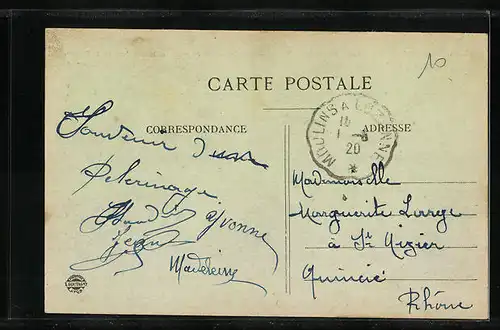 10
CARTE POSTALE
CORRESPONDANCE
ADRESSE
MOULINS A
1
20
Souvenir d'un
Pelerinage
Yvonne
Jean
Madeleine
Mademoiselle
Marguerite Large
à St Nizier
Quincié
Rhône